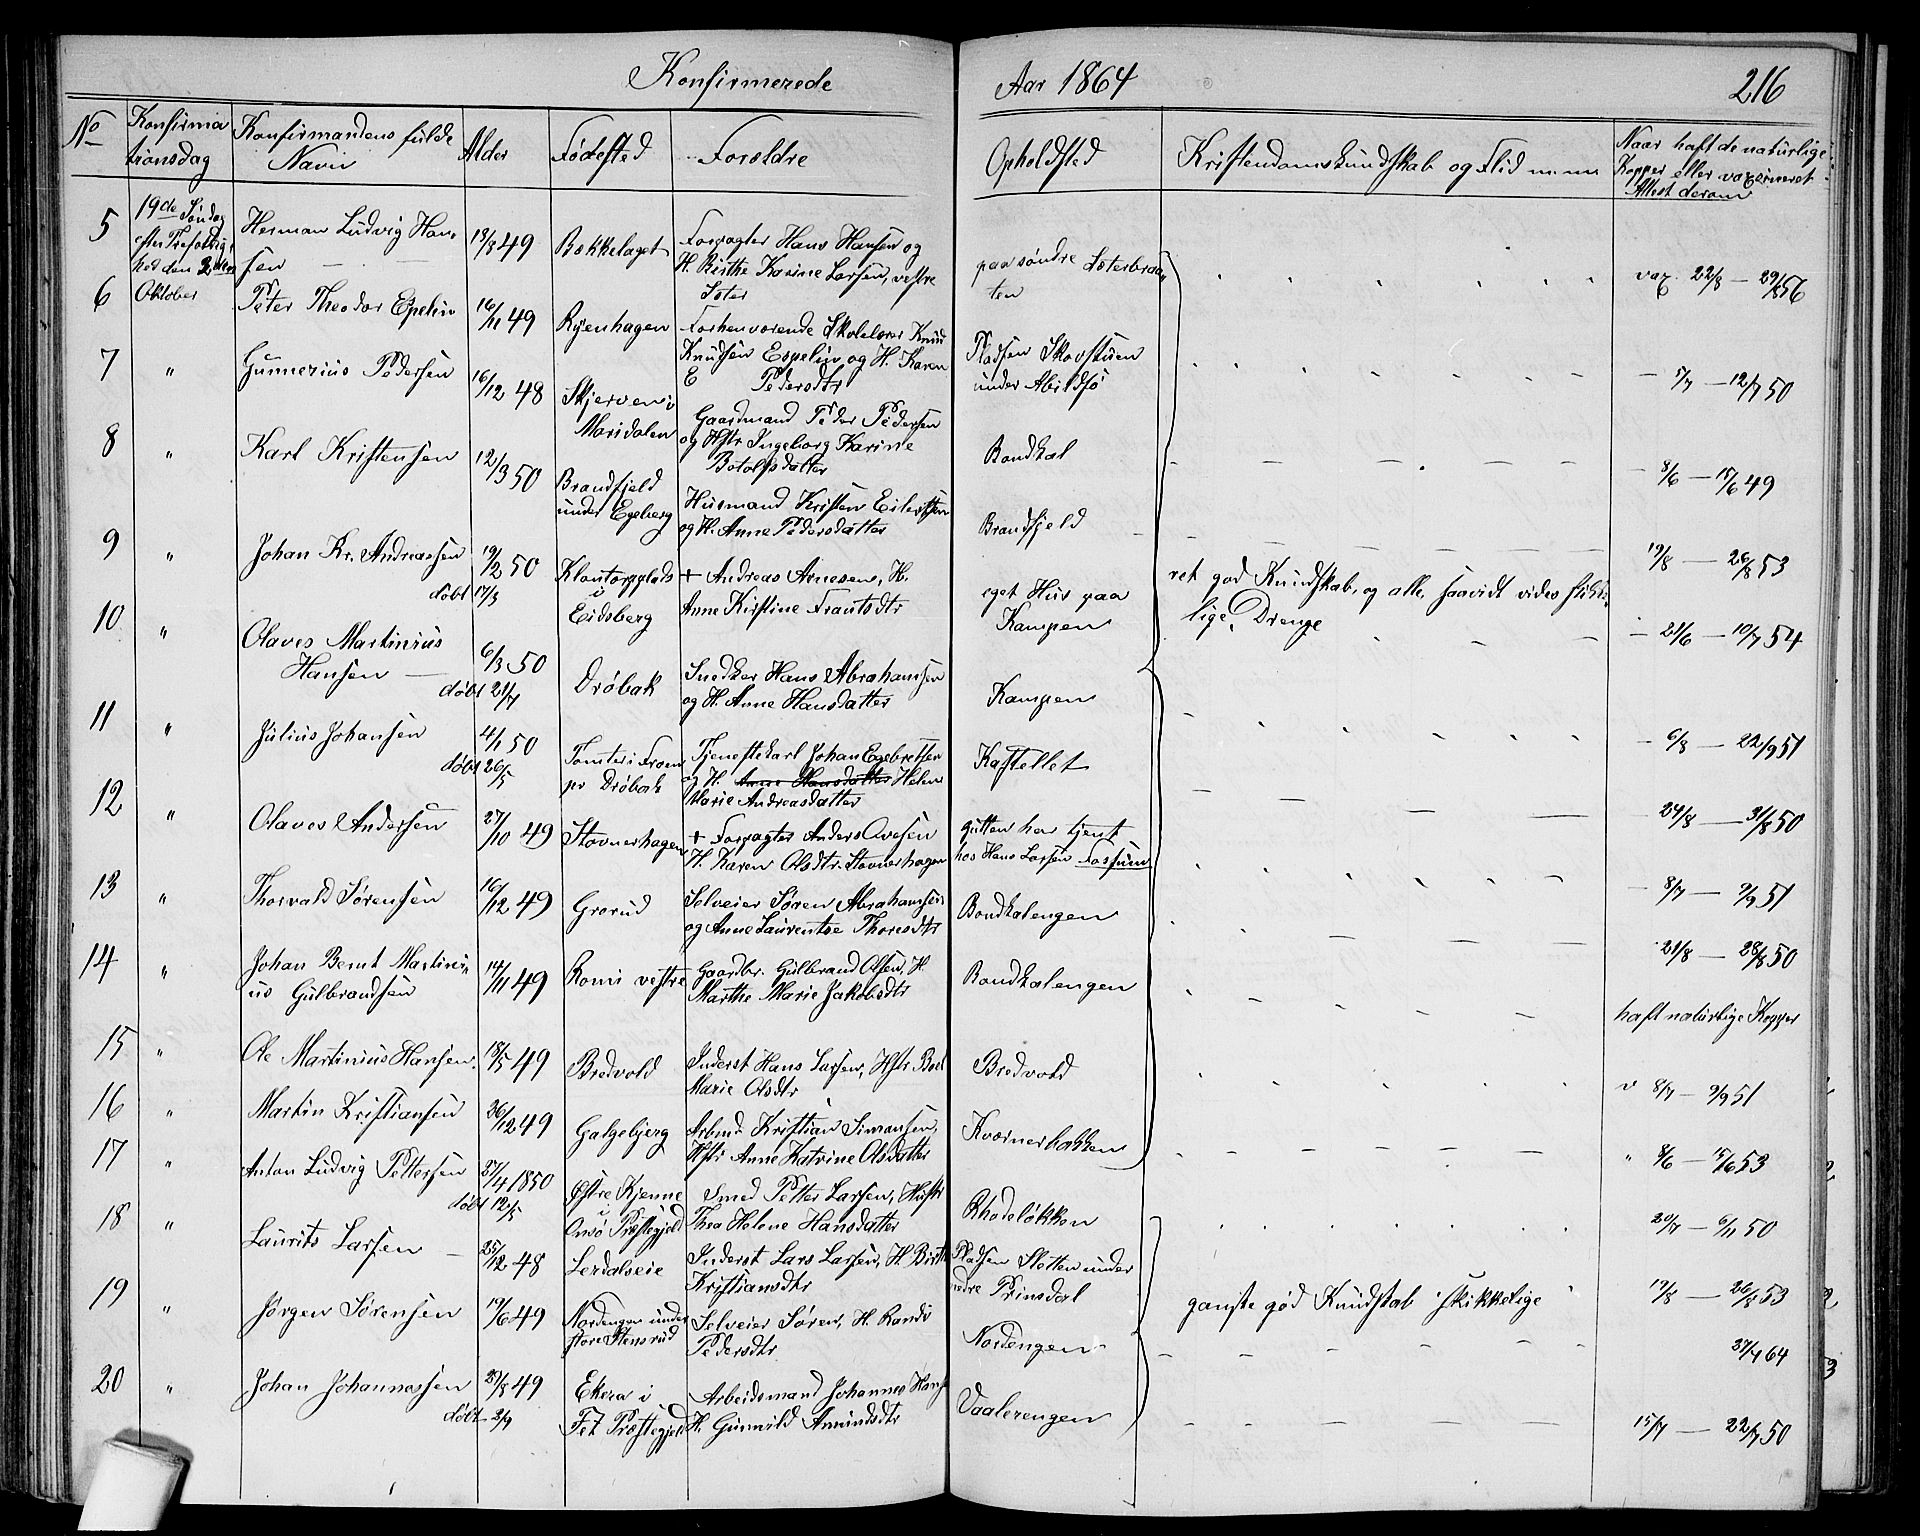 Konfirmerede Aar 1864 216
No Konfirmationsdag Konfirmandens fulde Navn Alder Fødested Forældre Opholdsted Kristendomskundskab og Flid m. m. Naar haft de naturlige Kopper eller vaxineret Attest derom
5 19de Søndag efter Trefoldighed den 2den Oktober Herman Ludvig Hansen 18/3 49 Bækkelaget Forpagter Hans Hansen og H. Birthe Karine Larsen, vestre paa søndre vax. 22/8 — 29/8 56
6 Peter Theodor Espelin 16/11 49 Ryenhagen Forhenværende Skolelærer Knud Knudsen Espelin og H. Karen E Pedersdtr Pladsen Skovstuen under Abildsø — 5/7 — 12/7 50
7 " Gunnerius Pedersen 16/12 48 Skjerven i Maridalen Gaardmand Peder Pedersen og Hstr Ingeborg Karine Botolfsdatter Bondkal — 8/6 — 15/6 49
8 " Karl Kristensen 12/3 50 Brandfjeld under Egeberg Husmand Kristen Eilertsen og H. Anne Pedersdatter Brandfjeld 19/8 — 26/8 53
9 " Johan Kr. Andreassen 19/2 50 døbt 17/3 i Eidsberg + Andreas Arnesen, H. Anne Kirstine Frantsdtr eget Hus paa Kampen ret god Kundskab, og alle, saavidt vides skikkelige Drenge — 21/6 — 10/7 54
10 " Olaves Martinius Hansen — 6/3 50 døbt 21/7 Drøbak Snedker Hans Abrahamsen og H. Anne Hansdatter Kampen — 6/8 — 22/9 51
11 " Julius Johansen 4/1 50 døbt 26/5 Tomter i Froen pr Drøbak Tjenestekarl Johan Egebretsen og H. Anne Hansdatter Helene Marie Andreasdatter Kastellet — 24/8 — 31/8 50
12 " Olaves Andersen 27/10 49 Stovnerhagen + Forpagter Anders Ovesen H. Karen Olsdtr. Stovnerhagen gutten har tjent hos Hans Larsen Fossum — 8/7 — 9/9 51
13 " Thorvald Sørensen 16/12 49 Grorud Selveier Søren Abrahamsen og Anne Laurentse Thoresdtr Bondkalengen 21/8 — 28/8 50
14 " Johan Bernt Martinius Gulbrandsen 14/11 49 Romi vestre Gaardbr. Gulbrand Olsen, H. Marthe Marie Jakobsdtr Bondkalengen haft naturlige Kopper
15 " Ole Martinius Hansen 18/5 49 Bredvold Inderst Hans Larsen, Hstr Boel Marie Olsdtr Bredvold v 8/7 — 9/9 51
16 " Martin Kristiansen 26/12 49 Galgebjerg Arbmd. Kristian Simonsen, Hstr Anne Katrine Olsdatter Kværnerbakken " 8/6 — 15/6 53
17 " Anton Ludvig Pettersen 27/4 1850 døbt 12/5 Østre Kjenne i Onsø Præstegjeld Smed Petter Larsen, Hustr Thea Helene Hansdatter Rhodeløkken 20/7 — 6/11 50
18 " Laurits Larsen — 25/12 48 Lerdalseie Inderst Lars Larsen, H. Birthe Kristiansdtr Pladsen Sletten under nedre Prinsdal ganske god Kundskab skikkelige 19/8 — 26/8 53
19 " Jørgen Sørensen 19/6 49 Nordengen under store Stensrud Selveier Søren, H. Randi Pedersdtr Nordengen 27/4 64
20 " Johan Johannessen 29/8 49 døbt 2/9 Ekera i Fet Præstegjeld Arbeidsmand Johannes Hansen H. Gunnild Amundsdtr Vaalerengen 15/7 — 22/7 50